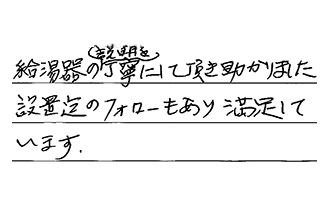 給湯器の(説明を)丁寧にして頂き助かりました
設置迄のフォローもあり満足して
います.